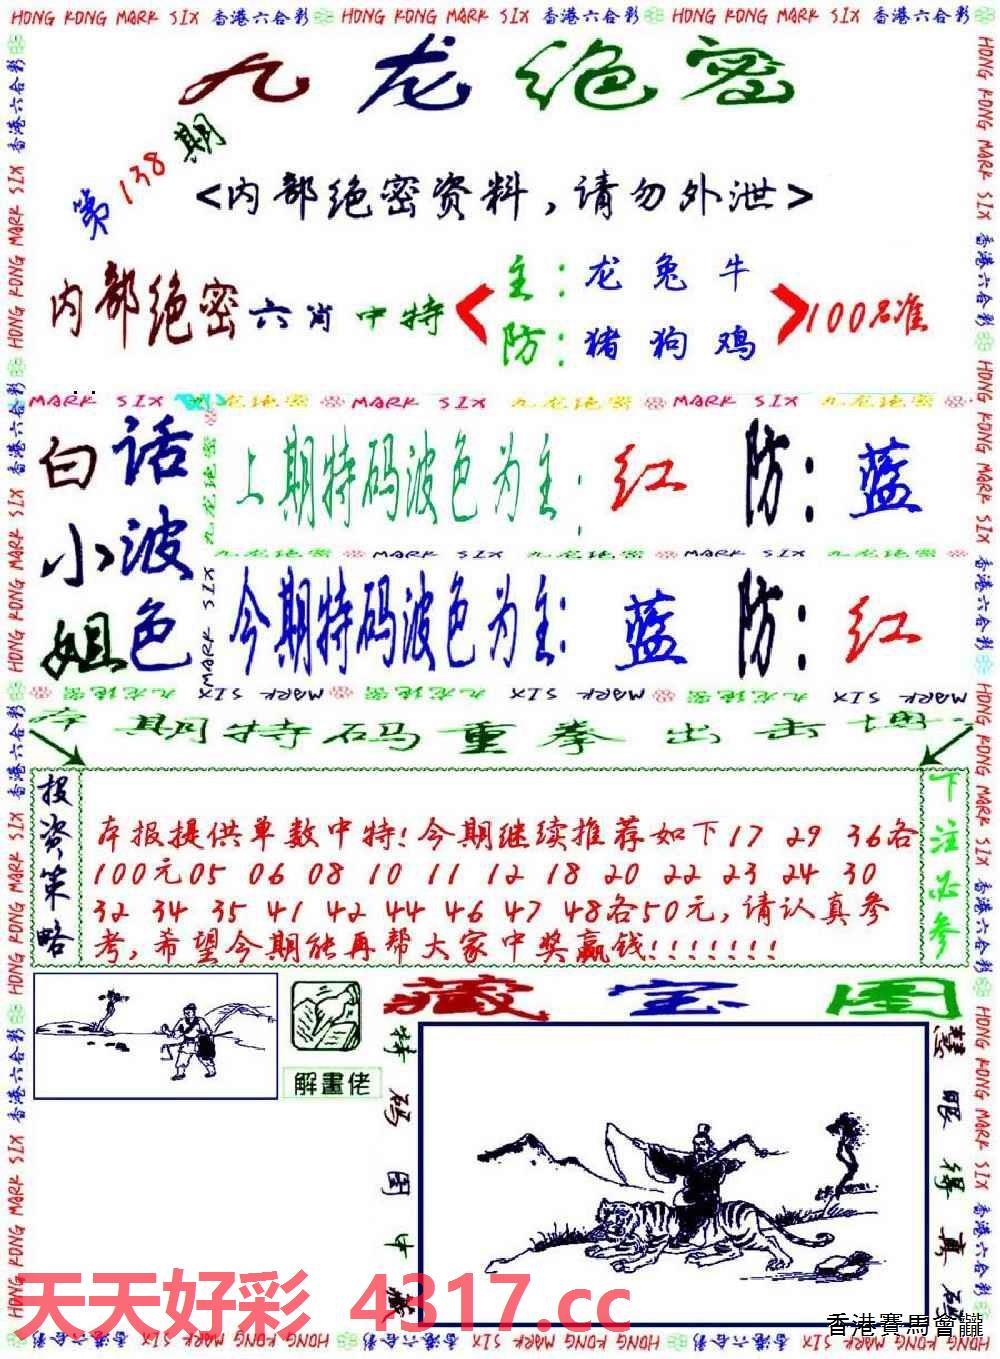 HONG KONG MARK SIX 香港六合彩 HONG KONG MARK SIX 香港六合彩 HONG KONG MARK SIX 香港六合彩
九龙绝密
第138期
<内部绝密资料,请勿外泄>
内部绝密六肖中特
主:龙兔牛
防:猪狗鸡
100%准
MARK SIX 九龙绝密 MARK SIX 九龙绝密 MARK SIX 九龙绝密
白话小波姐色
上期特码波色为主:红 防:蓝
九龙绝密 MARK SIX 九龙绝密 MARK SIX 九龙绝密
今期特码波色为主:蓝 防:红
本期特码重拳出击
投资策略
本报提供单数中特!今期继续推荐如下17 29 36各
100元05 06 08 10 11 12 18 20 22 23 24 30
32 34 35 41 42 44 46 47 48各50元,请认真参
考,希望今期能再帮大家中奖赢钱!!!!!!!
下注必参
藏宝图
解畫佬
特码图中藏
慧眼得真
天天好彩 4317.cc
香港賽馬會